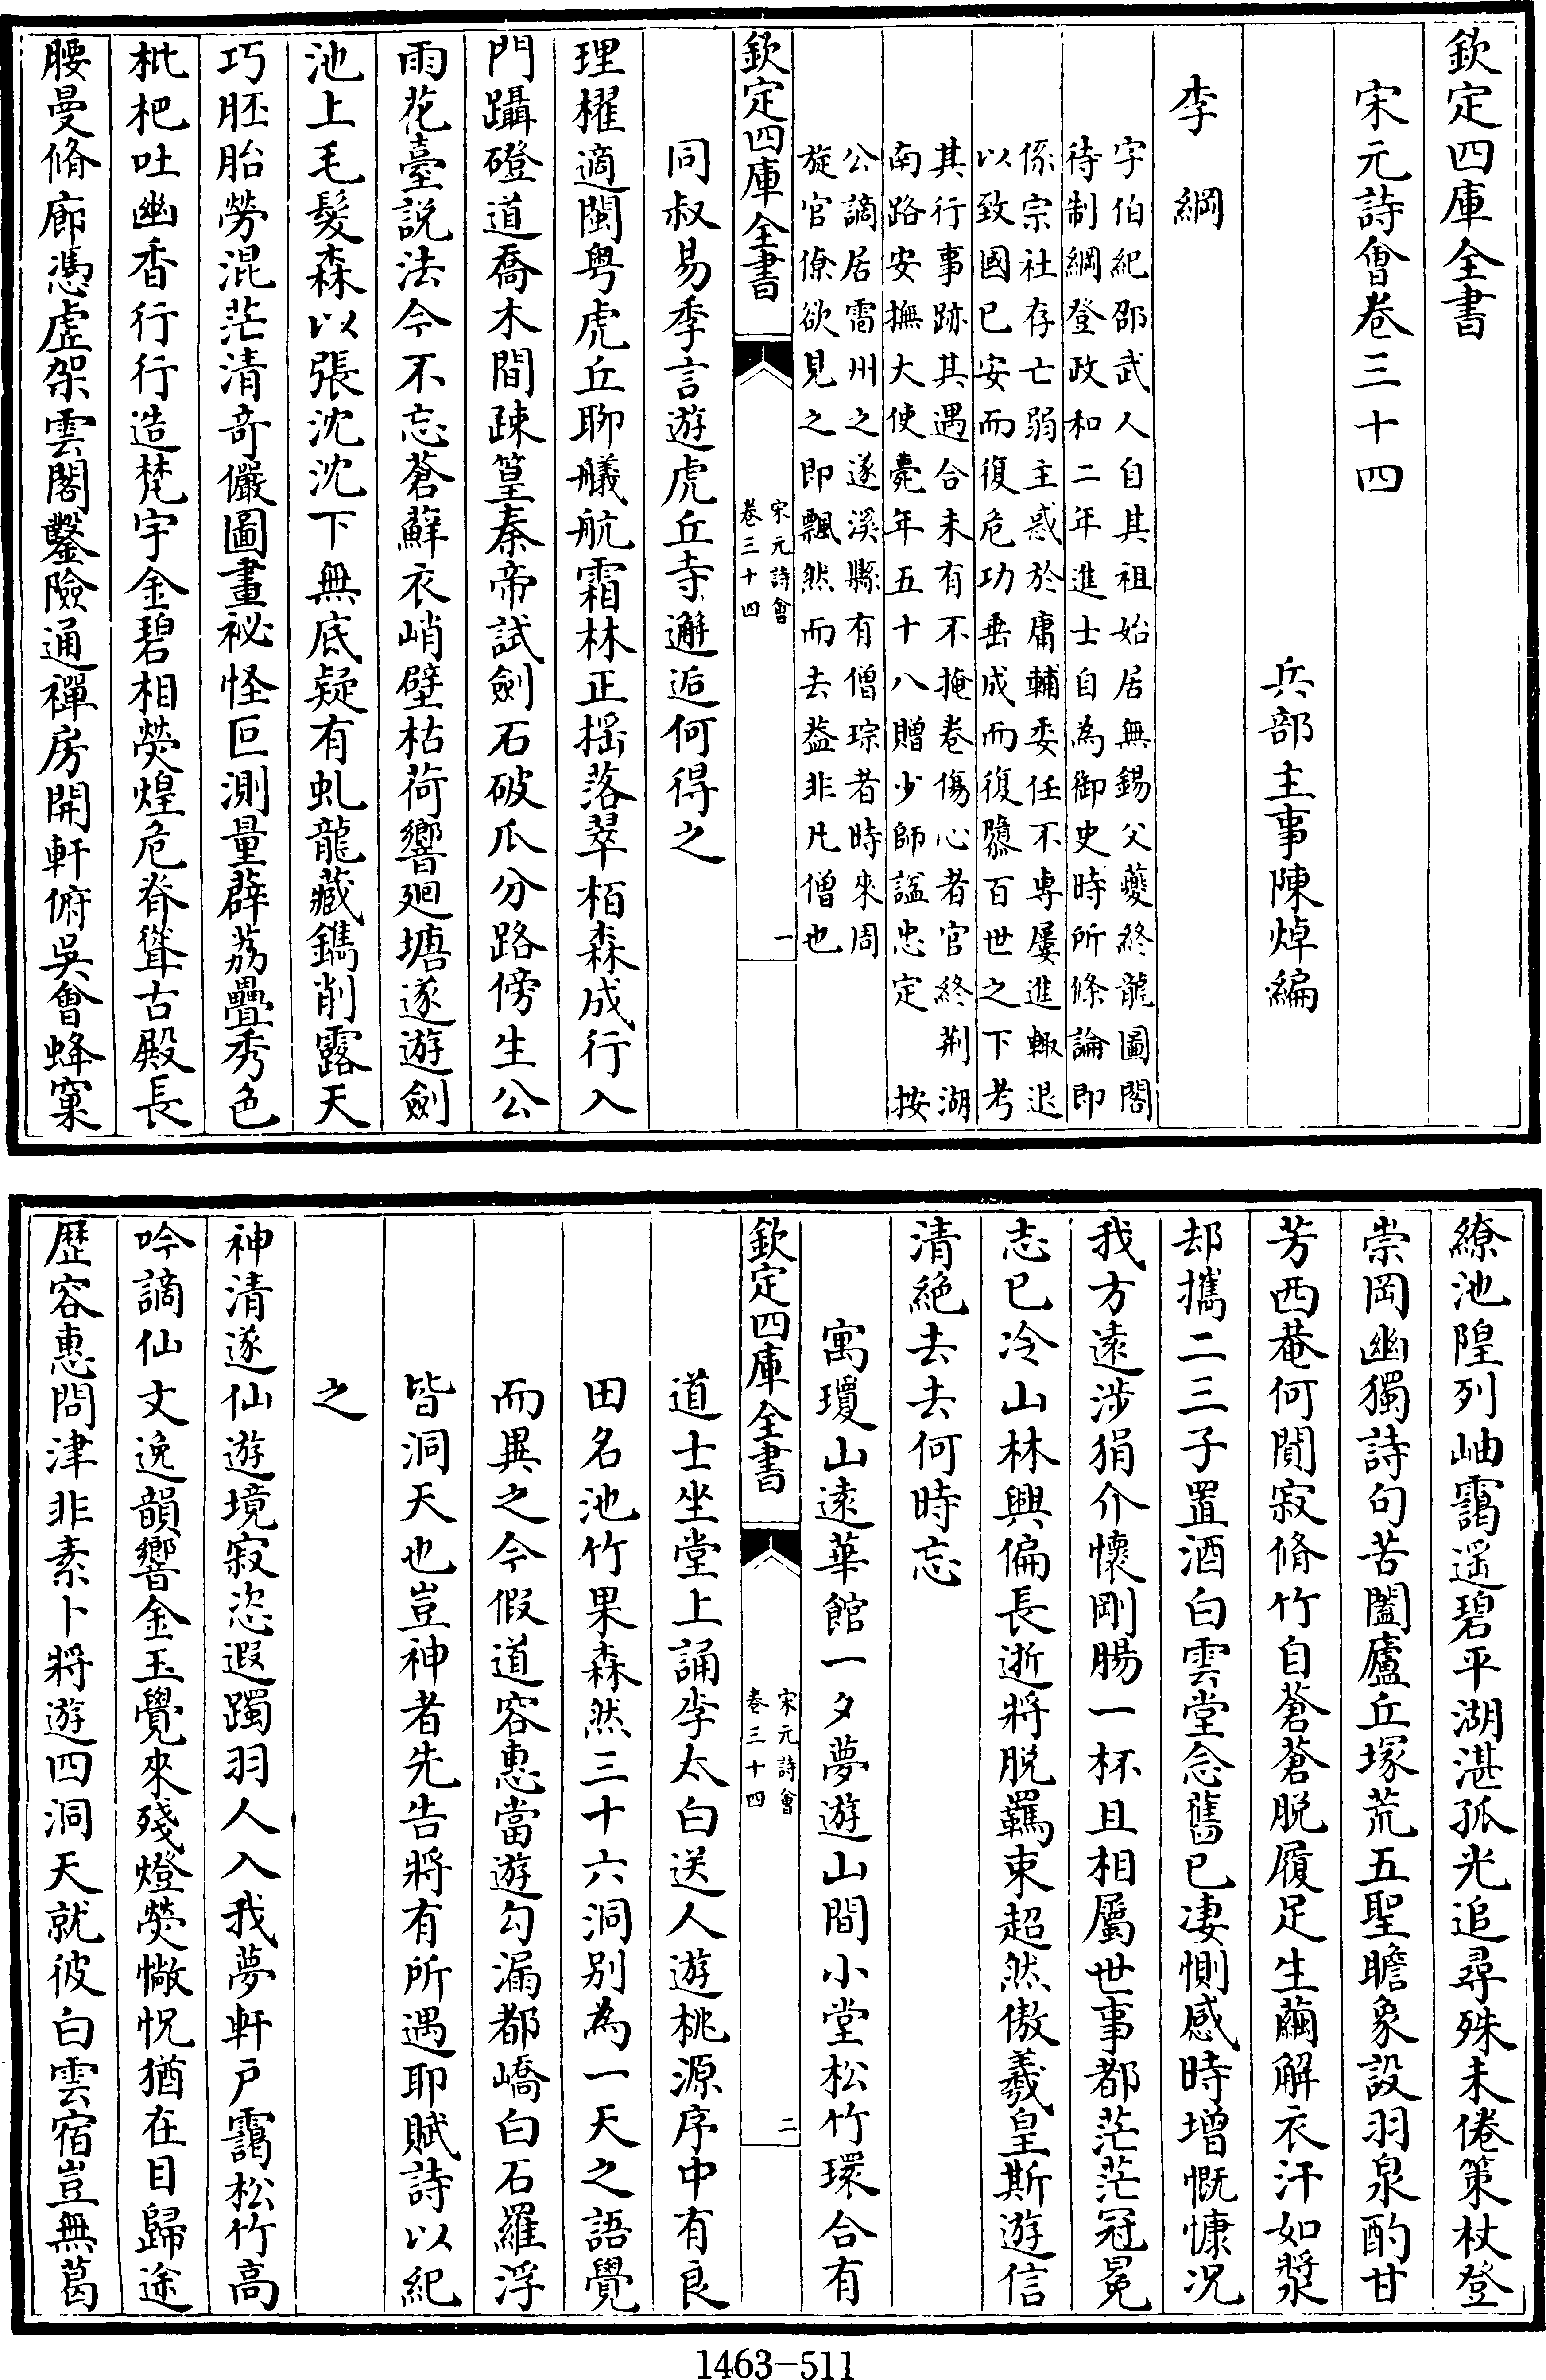 欽定四庫全書
宋元詩㑹卷三十四
兵部主事陳焯編
李綱
字伯紀邵武人自其祖始居無錫父夔終龍圖閣
待制綱登政和二年進士自為御史時所條論即
係宗社存亡弱主惑於庸輔委任不専屢進輙退
以致國已安而復危功垂成而復隳百世之下考
其行事跡其遇合未有不掩卷傷心者官終荆湖
南路安撫大使薨年五十八贈少師諡忠定　按
公謫居雷州之遂溪縣有僧琮者時來周
旋官僚欲見之即飄然而去葢非凡僧也
同叔易季言遊虎丘寺邂逅何得之
理櫂適閩粤虎丘聊艤航霜林正揺落翠栢森成行入
門躡磴道喬木間疎篁秦帝試劍石破爪分路傍生公
雨花臺說法今不忘蒼蘚衣峭壁枯荷響廻塘遂遊劍
池上毛髮森以張沈沈下無底疑有虬龍藏鐫削露天
巧胚胎勞混茫清竒儼圖畫祕怪叵測量薜荔疊秀色
枇杷吐幽香行行造梵宇金碧相熒煌危脊聳古殿長
腰曼脩廊憑虚架雲閣鑿險通禪房開軒俯吳會蜂窠
欽定四庫全書
宋元詩㑹
卷三十四
一
繚池隍列岫靄遥碧平湖湛孤光追尋殊未倦策杖登
崇岡幽獨詩句苦闔廬丘塚荒五聖瞻象設羽泉酌甘
芳西菴何閴寂脩竹自蒼蒼脱履足生繭解衣汗如漿
却攜二三子置酒白雲堂念舊已凄惻感時増慨慷况
我方逺涉狷介懐剛腸一杯且相屬世事都茫茫冠冕
志已冷山林興偏長逝將脱羈束超然傲羲皇斯遊信
清絶去去何時忘
寓瓊山逺華館一夕夢遊山間小堂松竹環合有
道士坐堂上誦李太白送人遊桃源序中有良
田名池竹果森然三十六洞别為一天之語覺
而異之今假道容惠當遊勾漏都嶠白石羅浮
皆洞天也豈神者先告將有所遇耶賦詩以紀
之
神清遂仙遊境寂恣遐躅羽人入我夢軒戸靄松竹高
吟謫仙文逸韻響金玉覺來殘燈熒惝怳猶在目歸途
歴容惠問津非素卜將遊四洞天就彼白雲宿豈無葛
欽定四庫全書
宋元詩㑹
卷三十四
二
1463-511